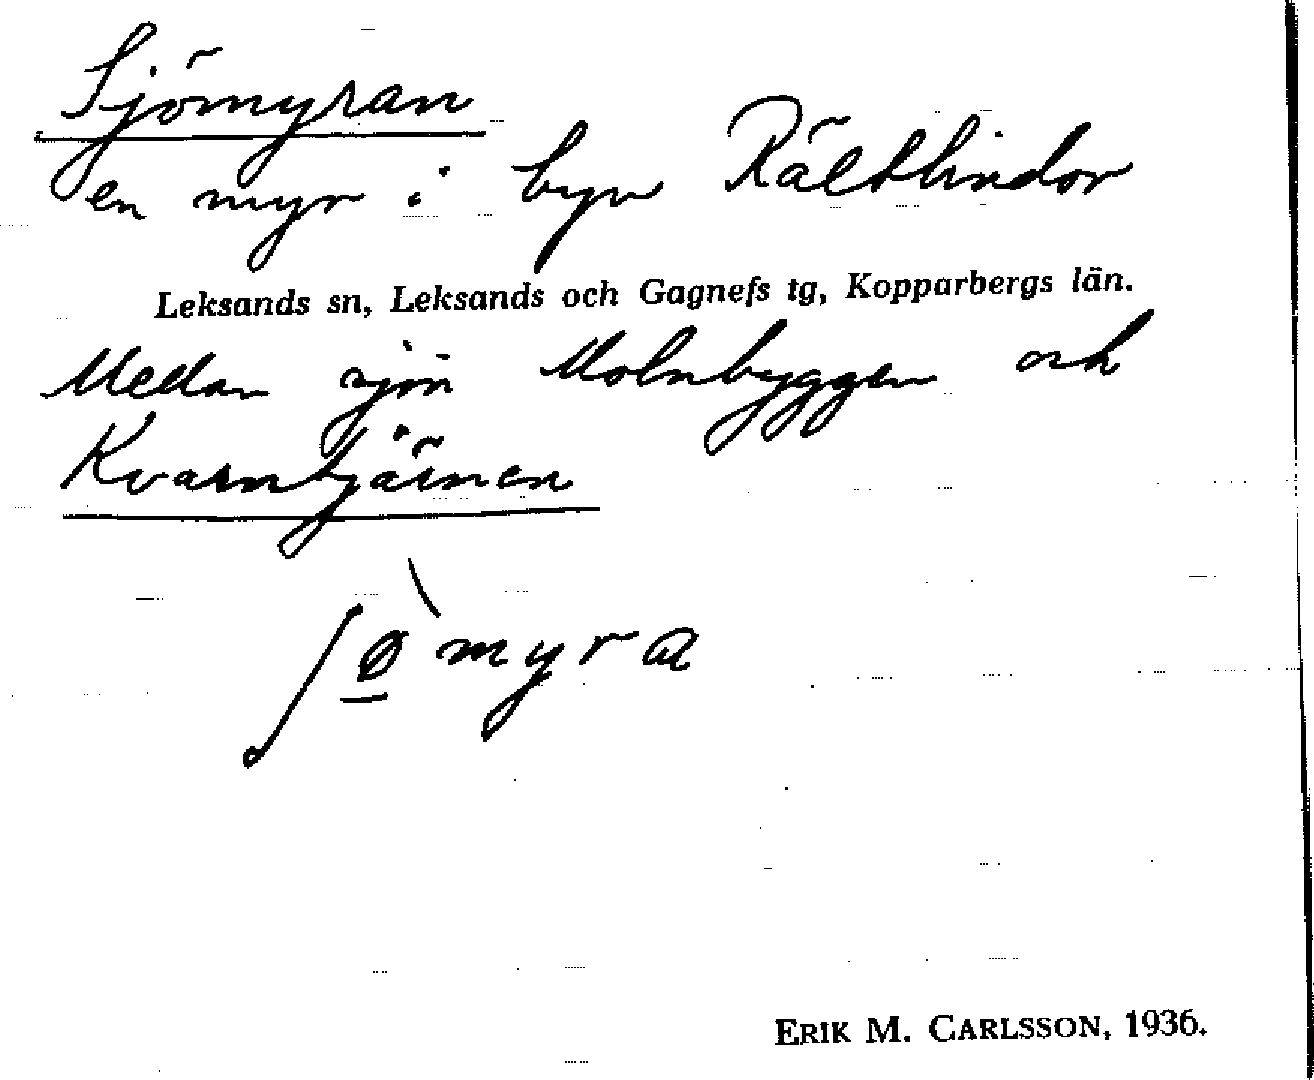 Sjömyran
en myr i byn Rältlindor
Leksands sn, Leksands och Gagnefs tg, Kopparbergs län.
Mellan sjön Molnbyggen och
Kvarntjärnen
ʃø̠̀myra
ERIK M. CARLSSON, 1936.